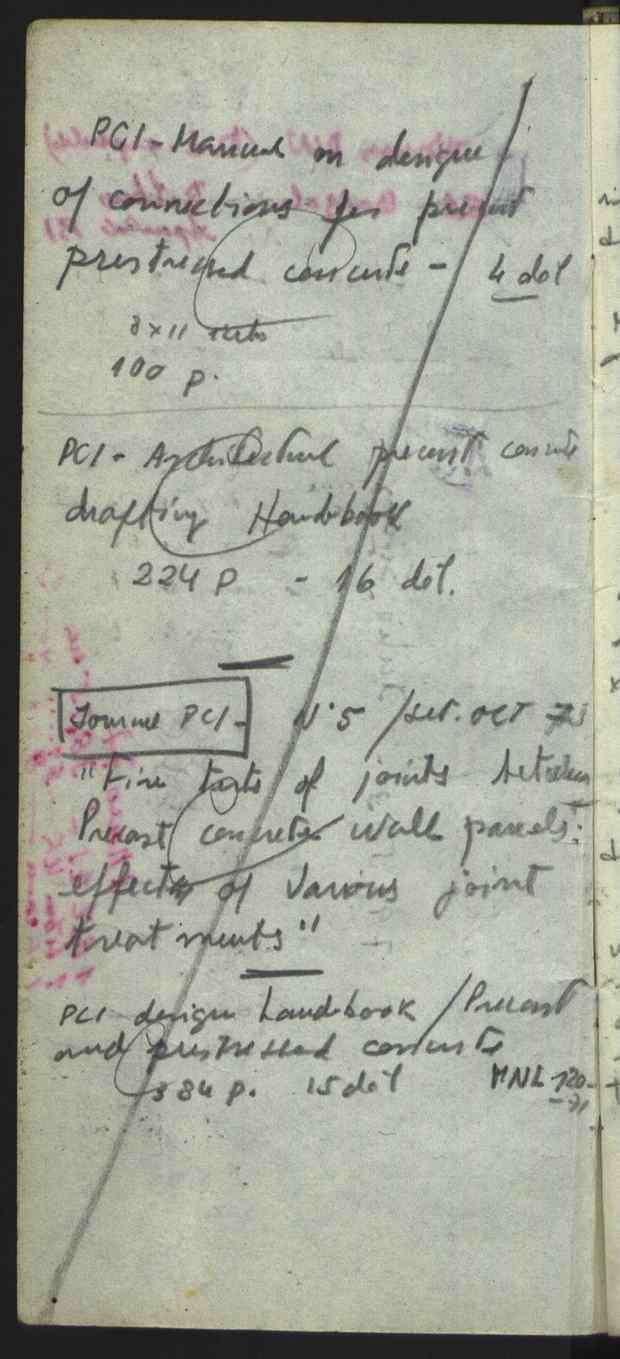 PCI - Manual on design
of connections for precast
prestressed concrete - 4 dol
8 x 11
100 p.
PCI - Architectural precast concrete
drafting Handbook
224 p - 16 dol.
PCI - N° 5 / Set. OCT 75
"Fire tests of joints between
Precast concrete wall panels:
effects of various joint
treatments"
PCI design handbook / Precast
and prestressed concrete
384 p. 15 dol MNL 120-
- 71